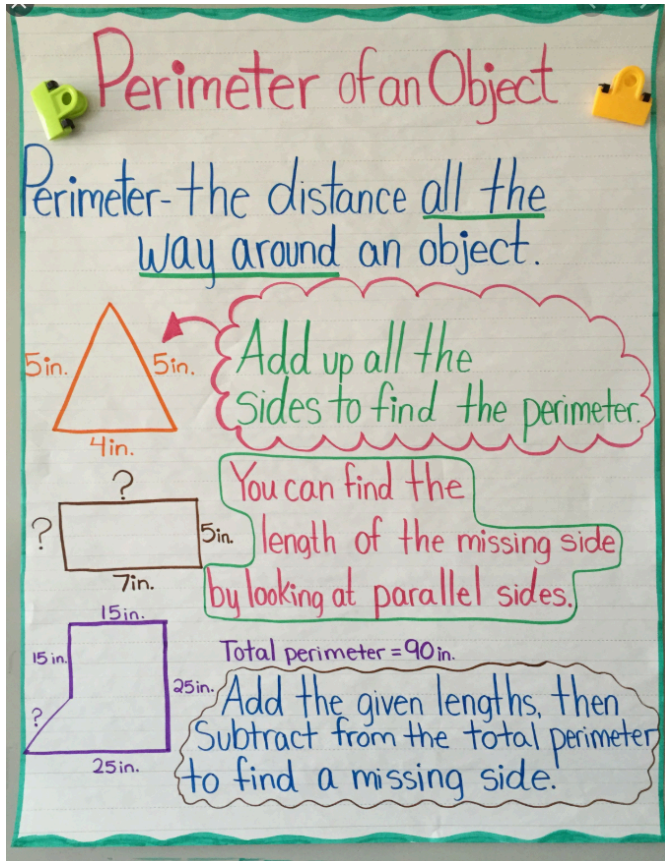 Perimeter of an Object
Perimeter - the distance all the
way around an object.
5in.
5in.
4in.
Add up all the
sides to find the perimeter.
?
?
5in.
7in.
You can find the
length of the missing side
by looking at parallel sides.
15in.
15in.
?
25in.
25in.
Total perimeter = 90in.
Add the given lengths, then
Subtract from the total perimeter
to find a missing side.